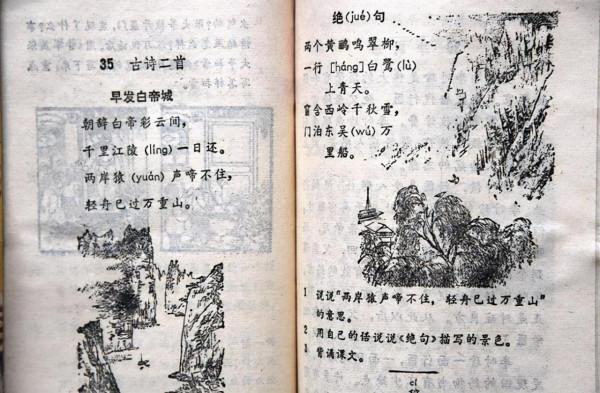 35 古诗二首
早发白帝城
朝辞白帝彩云间，
千里江陵 (líng) 一日还。
两岸猿 (yuán) 声啼不住，
轻舟已过万重山。
绝(jué)句
两个黄鹂鸣翠柳，
一行 [háng] 白鹭(lù)
上青天。
窗含西岭千秋雪，
门泊东吴(wú)万
里船。
1 说说“两岸猿声啼不住，轻舟已过万重山”
的意思。
2 用自己的话说说《绝句》描写的景色。
3 背诵课文。
cí